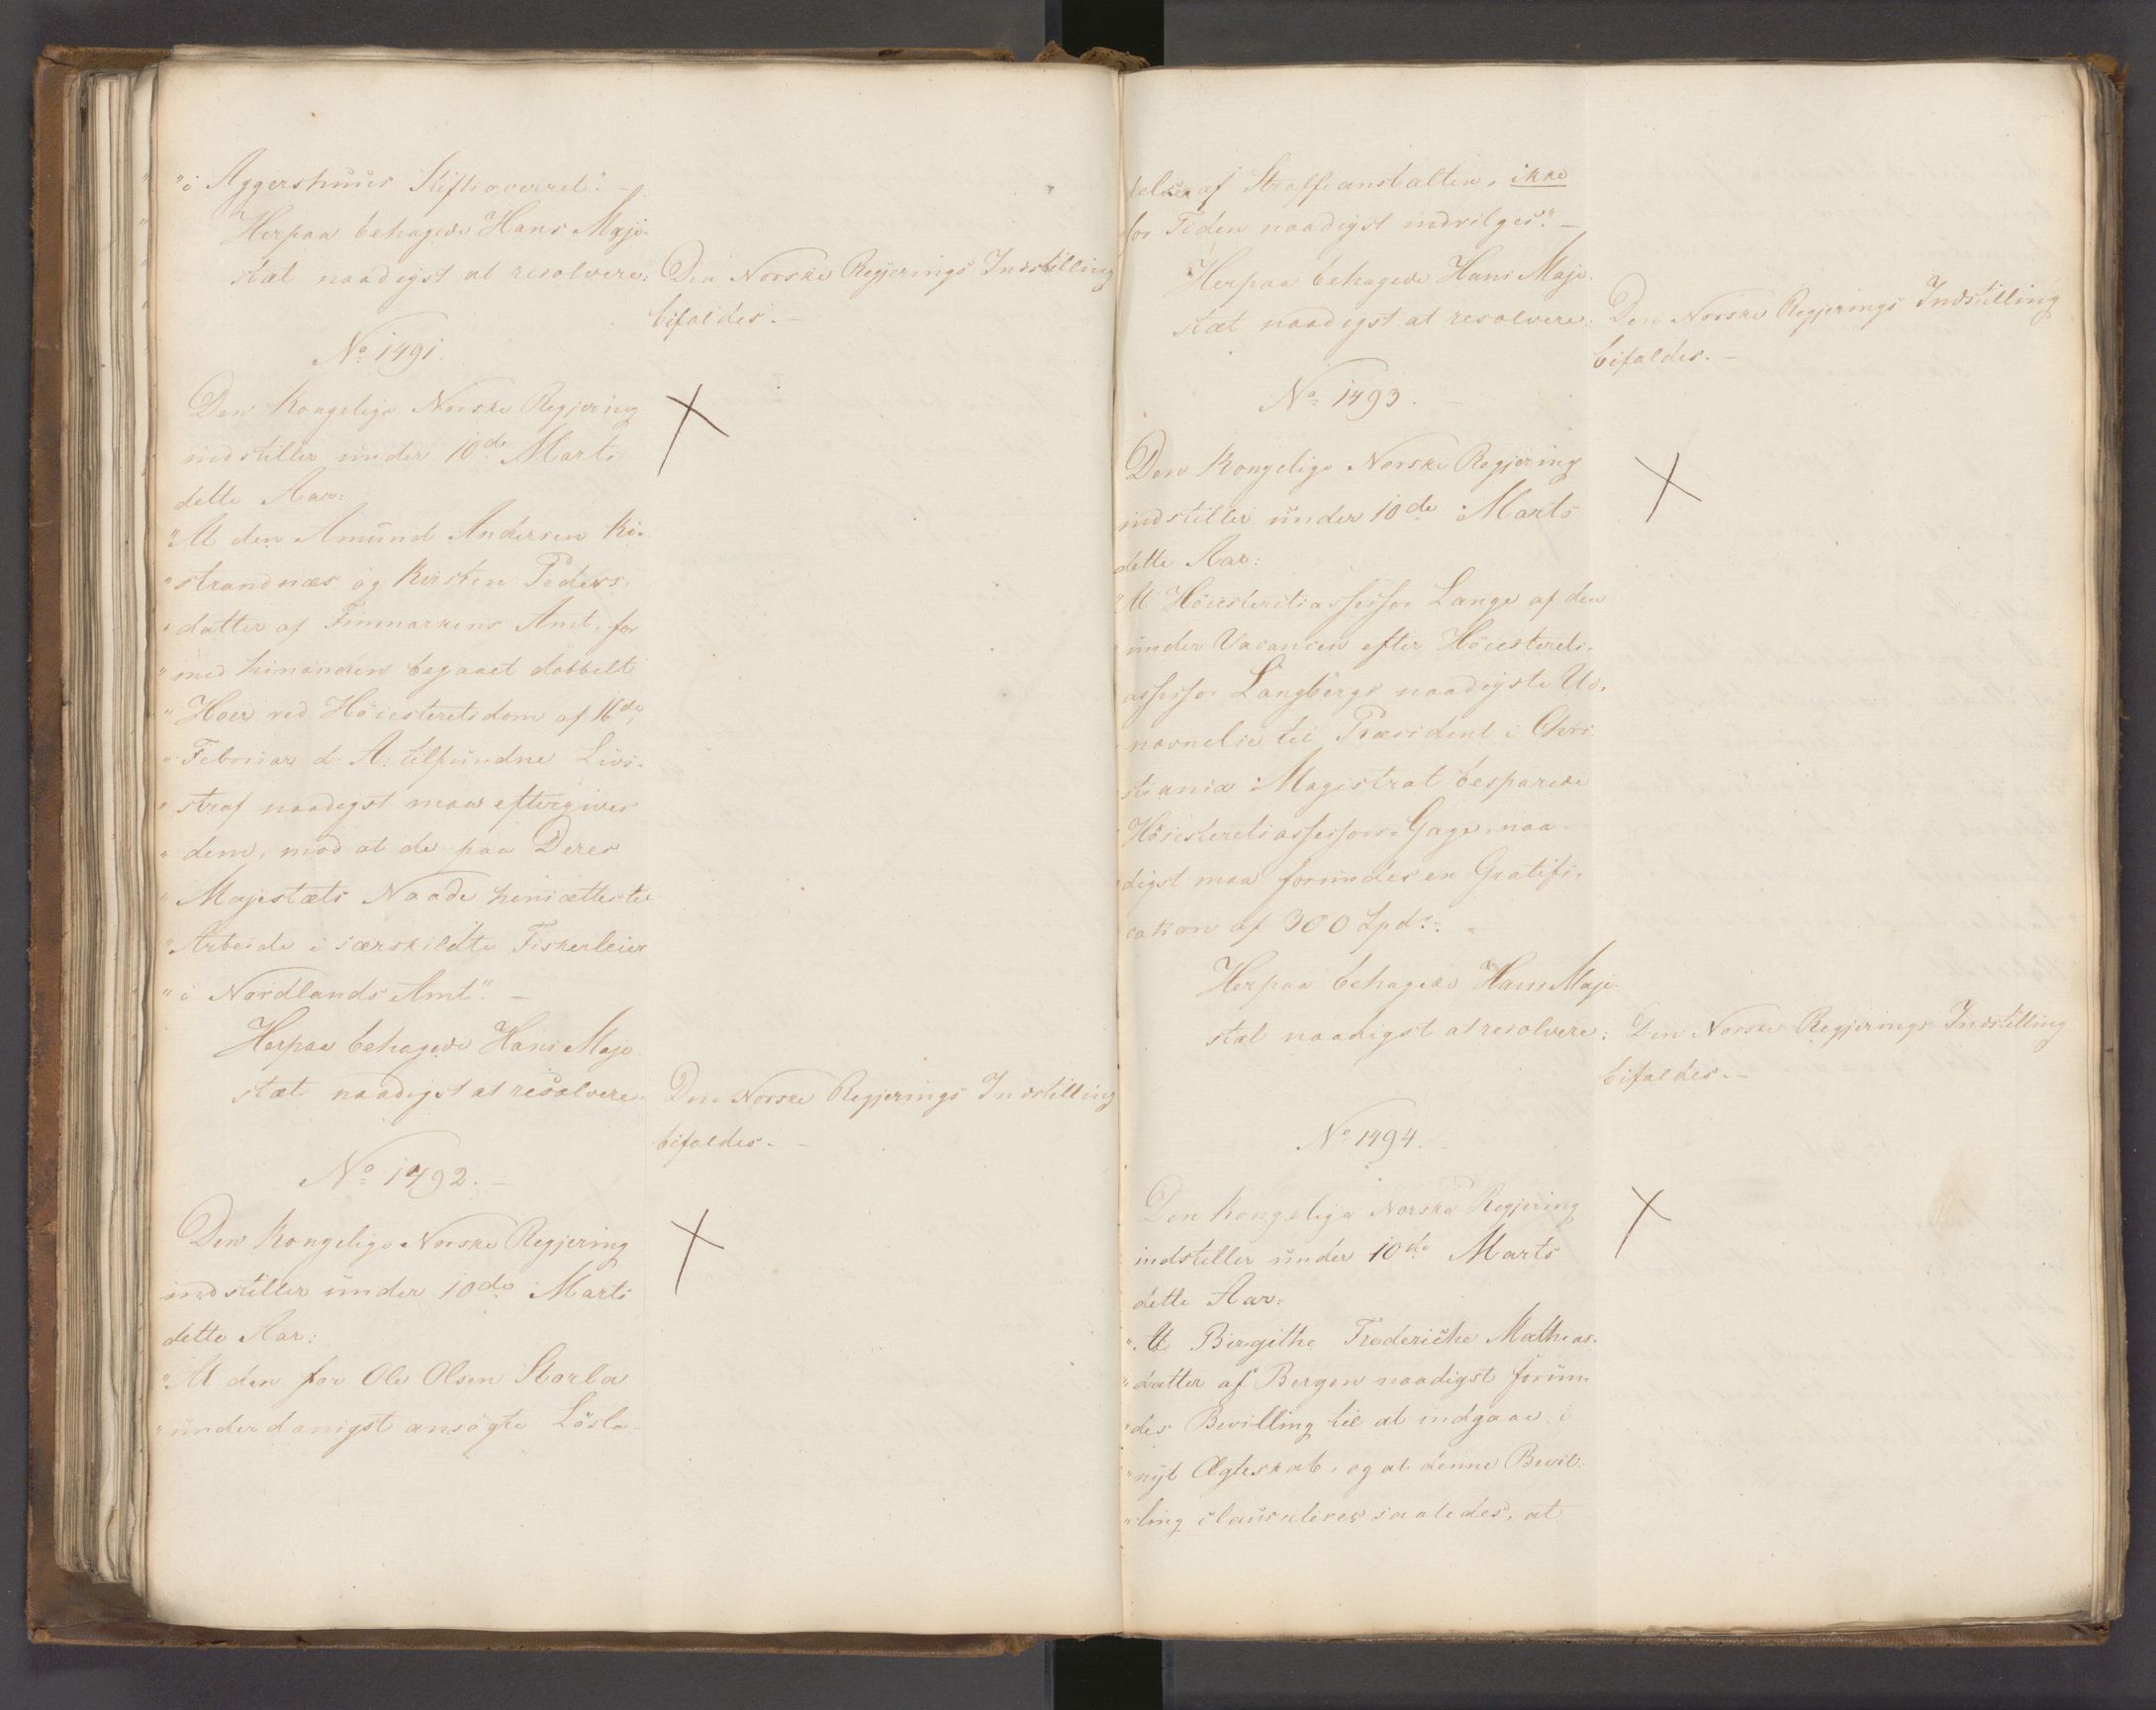 "i Aggershuus Stiftsoverret". -
Herpaa behagede Hans Maje-
stæt naadigst at resolvere: Den Norske Regjerings Indstilling
bifaldes. -
No 1491.
Den Kongelige Norske Regjering
indstiller under 10de Marts
dette Aar:
"At den Amund Andersen Ki-
"strandnæs og Kirsten Peders-
"datter af Finmarkens Amt, for
"med hinanden begaaet dobbelt
"Hoer ved Höiesteretsdom af 16de
"Februar d: A: tilfundne Livs-
"straf naadigst maa eftergives
"dem, mod at de paa Deres
"Majestæts Naade hensættes til
"Arbeide i særskildte Fiskerleier
"i Nordlands Amt". -
Herpaa behagede Hans Maje-
stæt naadigst at resolvere: Den Norske Regjerings Indstilling
bifaldes. -
No 1492. -
Den Kongelige Norske Regjering
indstiller under 10de Marts
dette Aar:
"At den for Ole Olsen Storla
"underdanigst ansögte Lösla-
delse af Straffeanstalten, ikke
for Tiden naadigst indvilges". -
Herpaa behagede Hans Maje-
stæt naadigst at resolvere: Den Norske Regjerings Indstilling
bifaldes. -
No 1493. -
Den Kongelige Norske Regjering
indstiller under 10de Marts
dette Aar:
"At Höiesteretsassessor Lange af den
"under Vacancen efter Höiesterets-
assessor Langbergs naadigste Ud-
nævnelse til Præsident i Chri-
stiania Magistrat besparede
Höiesteretsassessors Gage, naa-
digst maa forundes en Gratifi-
cation af 300 Spd". -
Herpaa behagede Hans Maje-
stæt naadigst at resolvere: Den Norske Regjerings Indstilling
bifaldes. -
No 1494.
Den Kongelige Norske Regjering
indstiller under 10de Marts
dette Aar:
"At Birgithe Frederiche Mathias-
"datter af Bergen naadigst forun-
"des Bevilling til at indgaae i
"nyt Ægteskab, og at denne Bevil-
"ling clausuleres saaledes, at